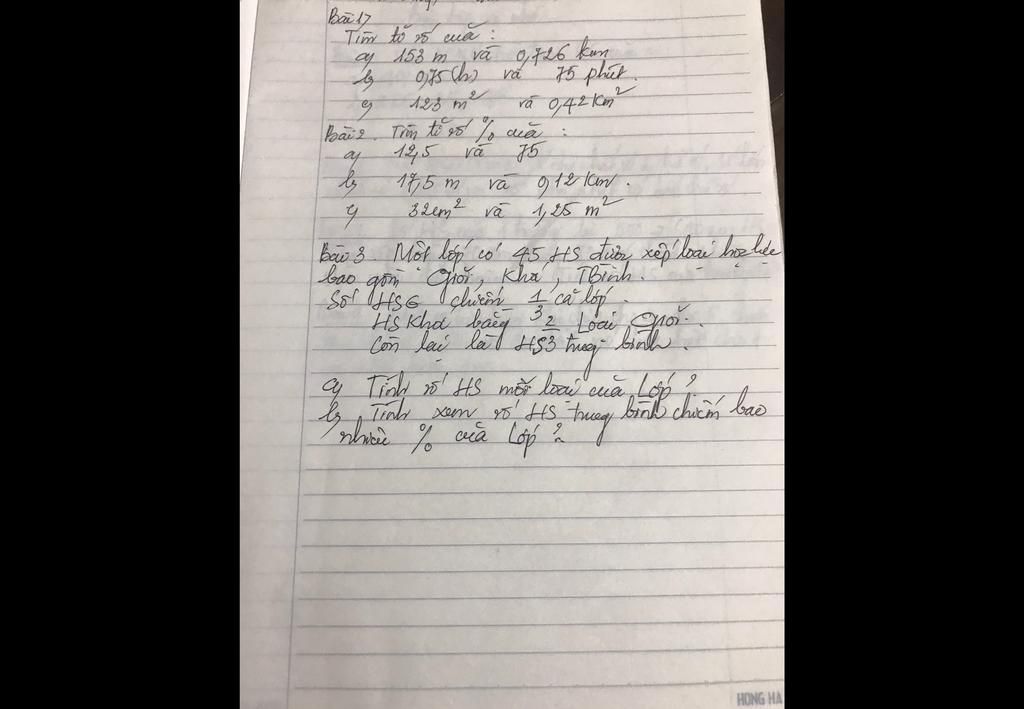 Bài 1)
Tìm tỉ số của :
a) 153 m và 0,726 km
b) 0,75 (h) và 75 phút.
c) 123 m² và 0,42 Km²
Bài 2. Tìm tỉ số % của :
a) 12,5 và 75
b) 17,5 m và 0,12 Km.
c) 32cm² và 1,25 m²
Bài 3. Một lớp có 45 HS được xếp loại học lực
bao gồm Giỏi, Khá, TBình.
Số HSG chiếm 1/3 cả lớp.
HS Khá bằng 2/3 Loại Giỏi.
Còn lại là HS trung bình.
a) Tính số HS mỗi loại của Lớp ?
b) Tính xem số HS trung bình chiếm bao
nhiêu % của Lớp ?
HONG HA